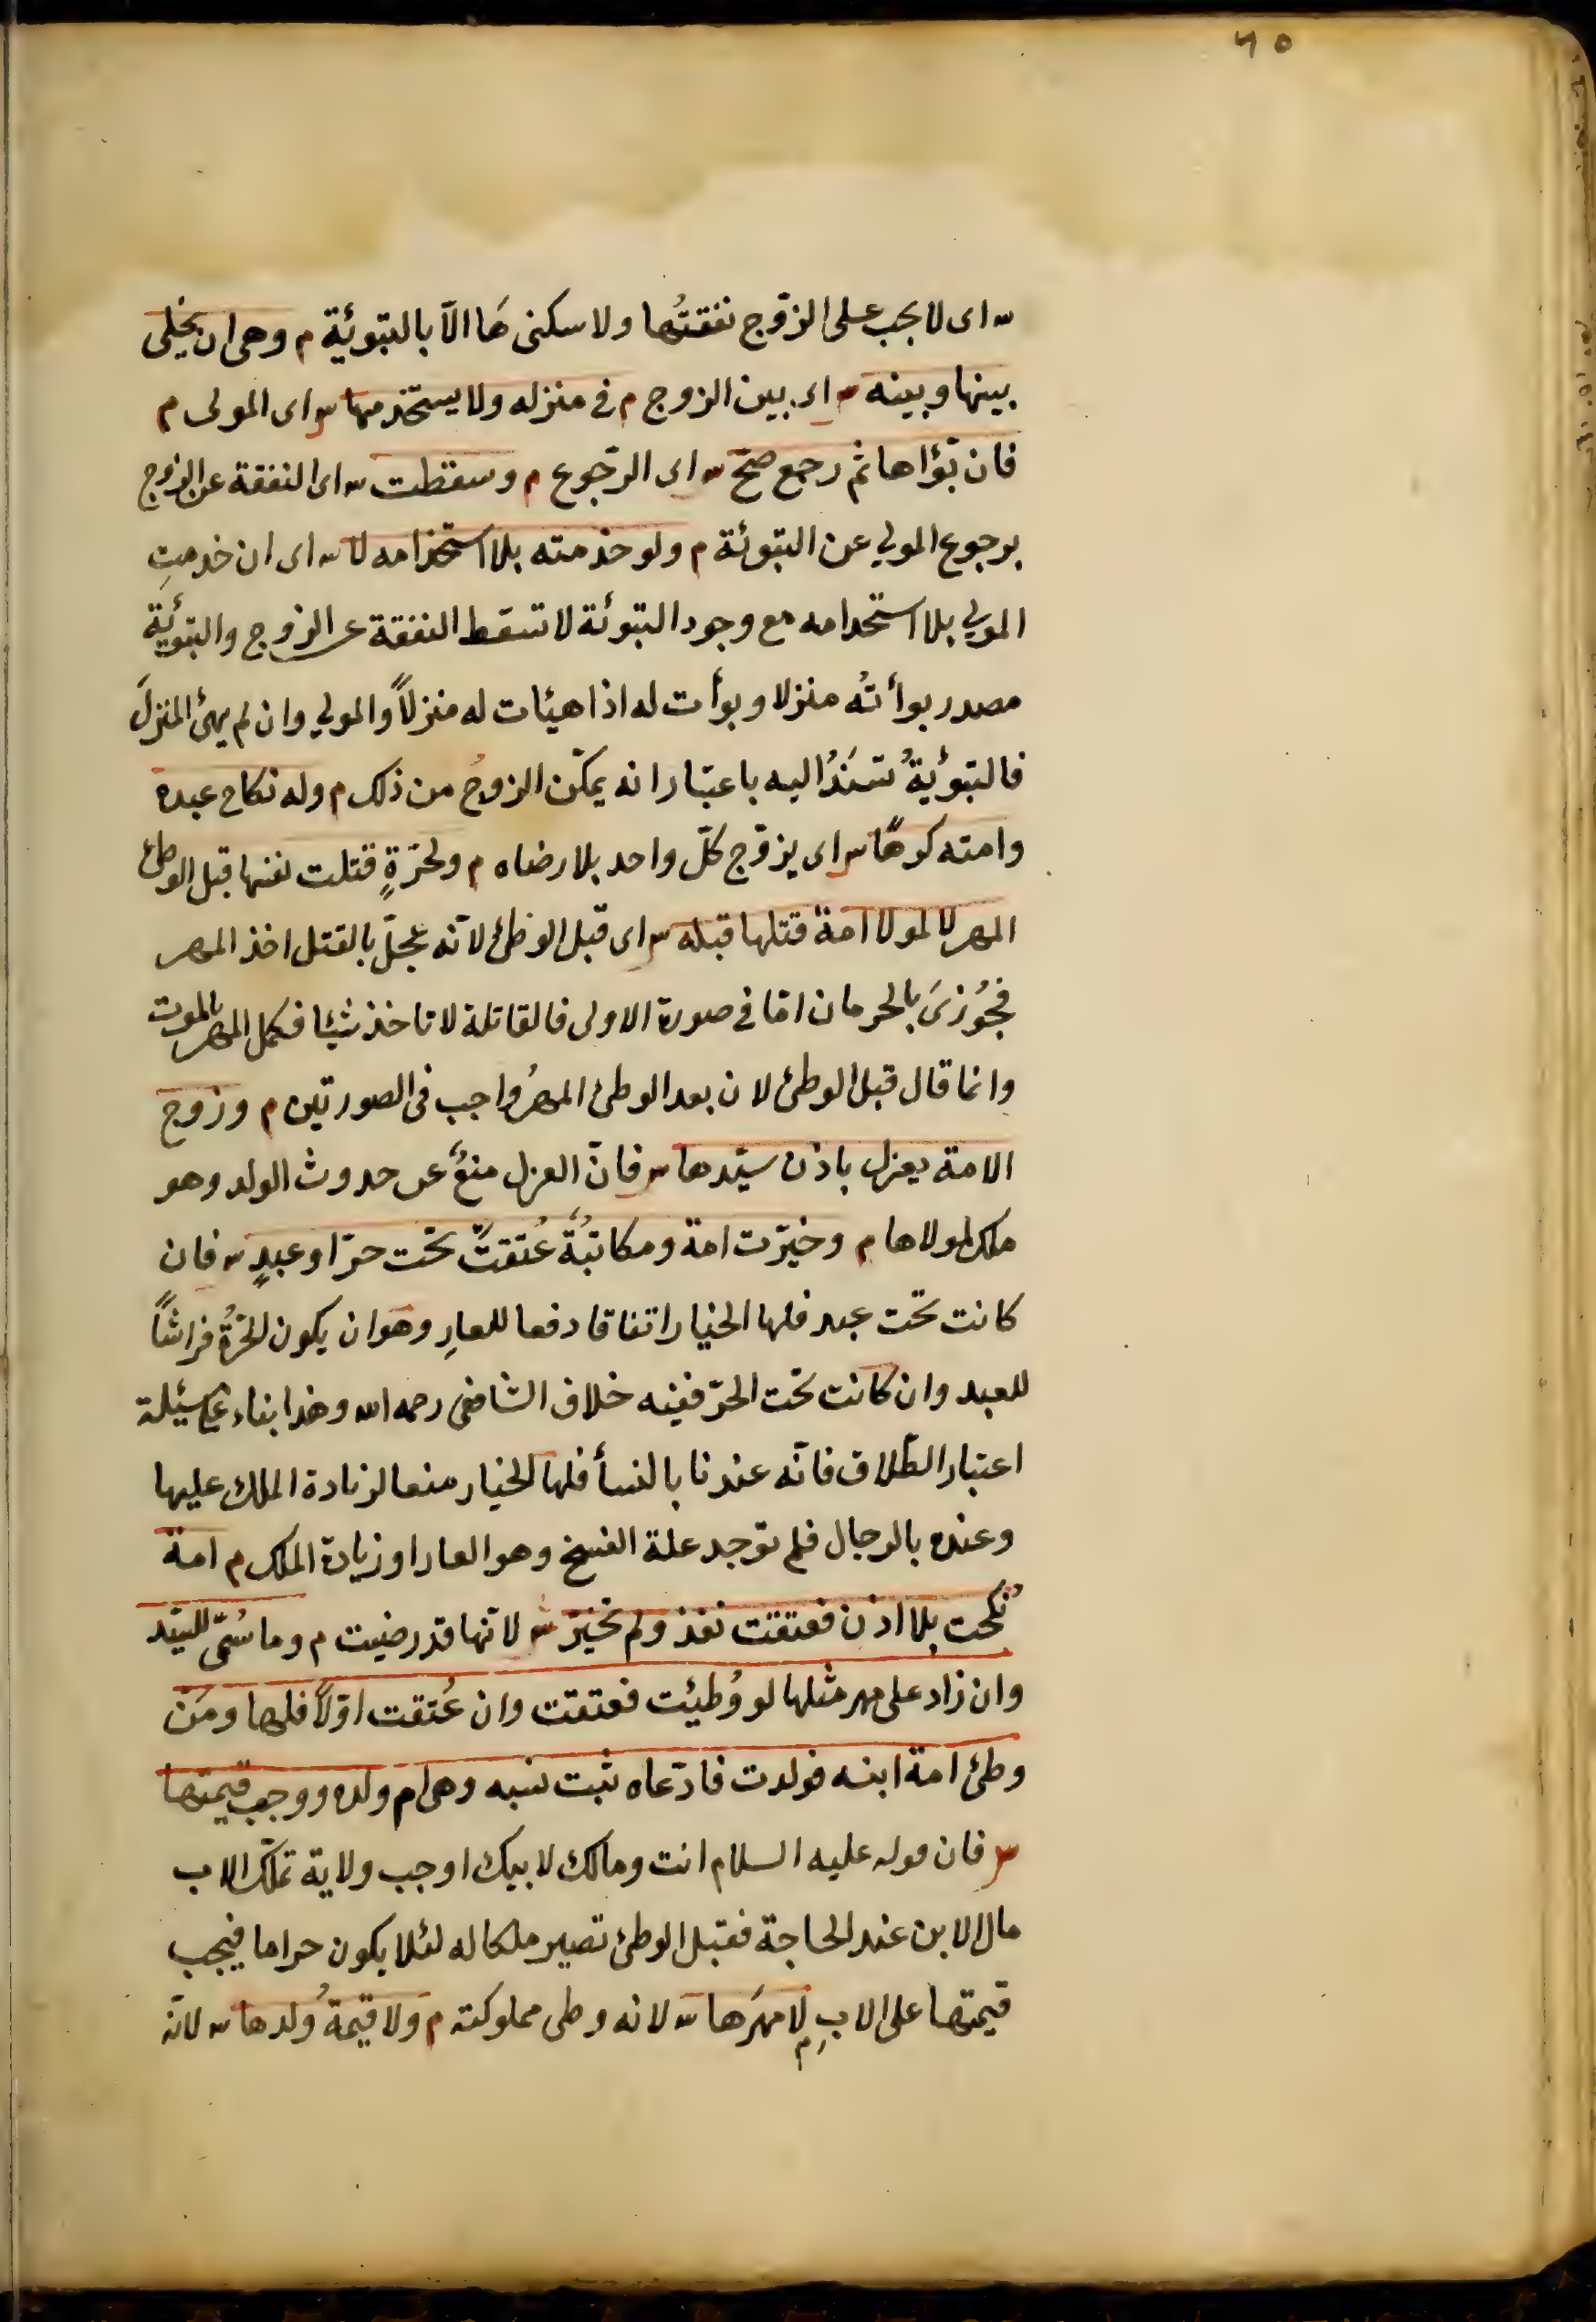 ٦٥
س اى لا يجب على الزوّج نفقتُها ولا سكنى هَا الاّ بالتبوئية م وهى ان يخلى
بينها وبينه س اى بين الزوج م فى منزله ولا يستخدمها س اى المولى م
فان بوّاها ثم رجع صحّ س اى الرّجوع م وسقطت س اى النفقة عن الزوج
برجوع المولى عن التبوئة م ولو خدمته بلا استخدامه لا س اى ان خدمتِ
المولى بلا استخدامه مع وجود التبوئة لا تسقط النفقة عن الزوج والتبوئية
مصدر بوأته منزلا وبوأت له اذا هيئات له منزلاً والمولى وان لم يهئ المنزلَ
فالتبوئيةُ تسَندُ اليه باعتبار انه يمكّن الزوجُ من ذلك م وله نكاح عبده
وامته كرهًا س اى يزوّج كلّ واحد بلا رضاه م ولحرّةٍ قتلت نفسها قبل الوطئ
المهر لا لمولا امة قتلها قبله س اى قبل الوطئ لانّه عجلّ بالقتل اخذ المهر
فجُوزىَ بالحرمان امّا فى صورة الاولى فالقاتلة لا تاخذ شيئا فكمل المهر بالموت
وانما قال قبل الوطئ لان بعد الوطئ المهرُ واجب فى الصورتين م وزوج
الامة يعزل باذن سيّدها س فانّ العزل منعٌ عن حدوث الولد وهو
ملك لمولاها م وخيّرت امة ومكاتبُةٌ عُتقتّ تحت حرّ او عبدٍ س فان
كانت تحت عبد فلها الخيار اتفاقا دفعا للعارِ وهو ان يكون الحرّةُ فراشاً
للعبد وان كانت تحت الحرّ ففيه خلاف الشافعى رحمه الله وهذا بناء على مسئلة
اعتبار الطّلاق فانّه عندنا بالنسأ فلها الخيار منعا لزيادة الملك عليها
وعنده بالرجال فلم توجد علة الفسخ وهو العار او زيادة الملك م امة
نُكحت بلا اذن فعتقت نفذ ولم تخيّر ش لانّها قد رضيت م وما سُمّى للسيّد
وان زاد على مهر مثلها لو وُطيئت فعتقت وان عُتقت اوّلاً فلها ومَن
وطئ امة ابنه فولدت فادّعاه ثبت نسبه وهى ام ولده ووجب قيمتها
س فان قوله عليه السلام انت ومالك لابيك اوجب ولاية تملّك الاب
مال الابن عند الحاجة فقبل الوطئ تصير ملكا له لئلا يكون حراما فيجب
قيمتها على الابِ م لا مهرَها س لانه وطى مملوكته م ولا قيمةُ ولدها س لانّه